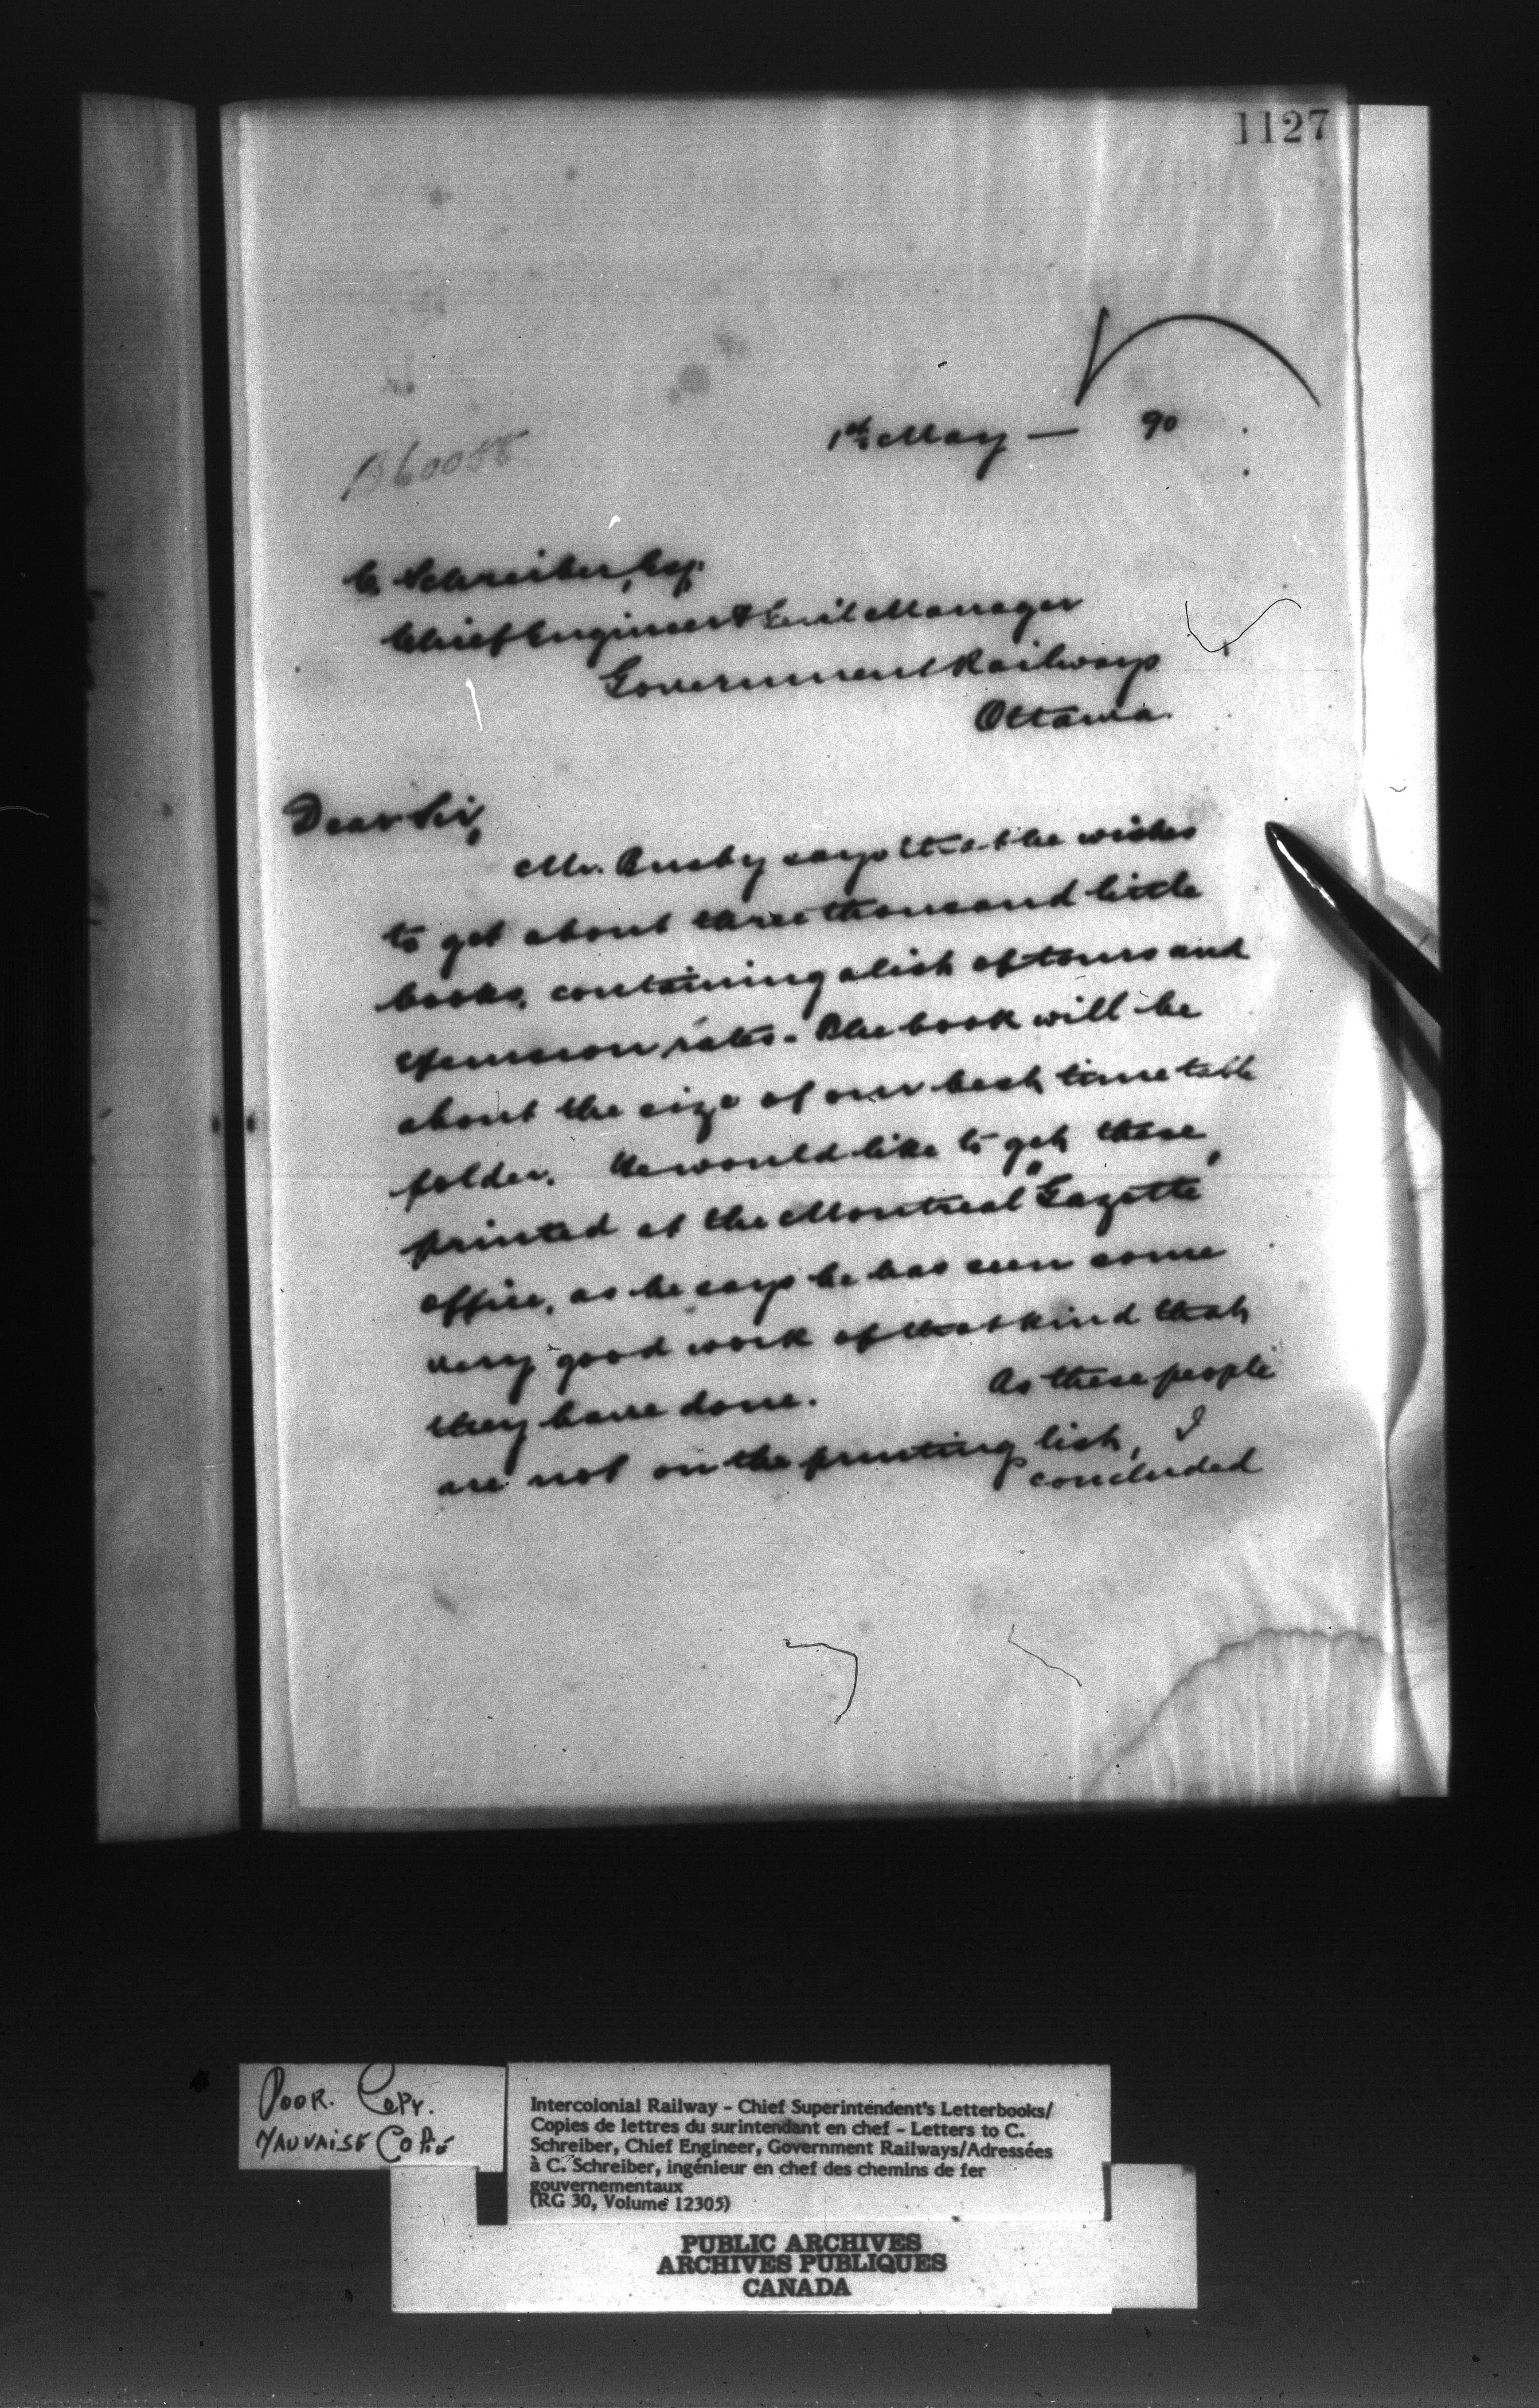 1127
1st May — 90
B60058
C. Schreiber, Esq.
Chief Engineer & Gen'l Manager
Government Railways
Ottawa.
Dear Sir,
Mr. Busby says that he wishes
to get about three thousand little
books, containing a list of tours and
excursion rates. The book will be
about the size of our best time table
folder. He would like to get these
printed at the Montreal "Gazette"
office, as he says he has seen some
very good work of that kind that
they have done. As these people
are not on the printing list, I
concluded
POOR. COPY.
MAUVAISE COPIE
Intercolonial Railway - Chief Superintendent's Letterbooks/
Copies de lettres du surintendant en chef - Letters to C.
Schreiber, Chief Engineer, Government Railways/Adressées
à C. Schreiber, ingénieur en chef des chemins de fer
gouvernementaux
(RG 30, Volume 12305)
PUBLIC ARCHIVES
ARCHIVES PUBLIQUES
CANADA